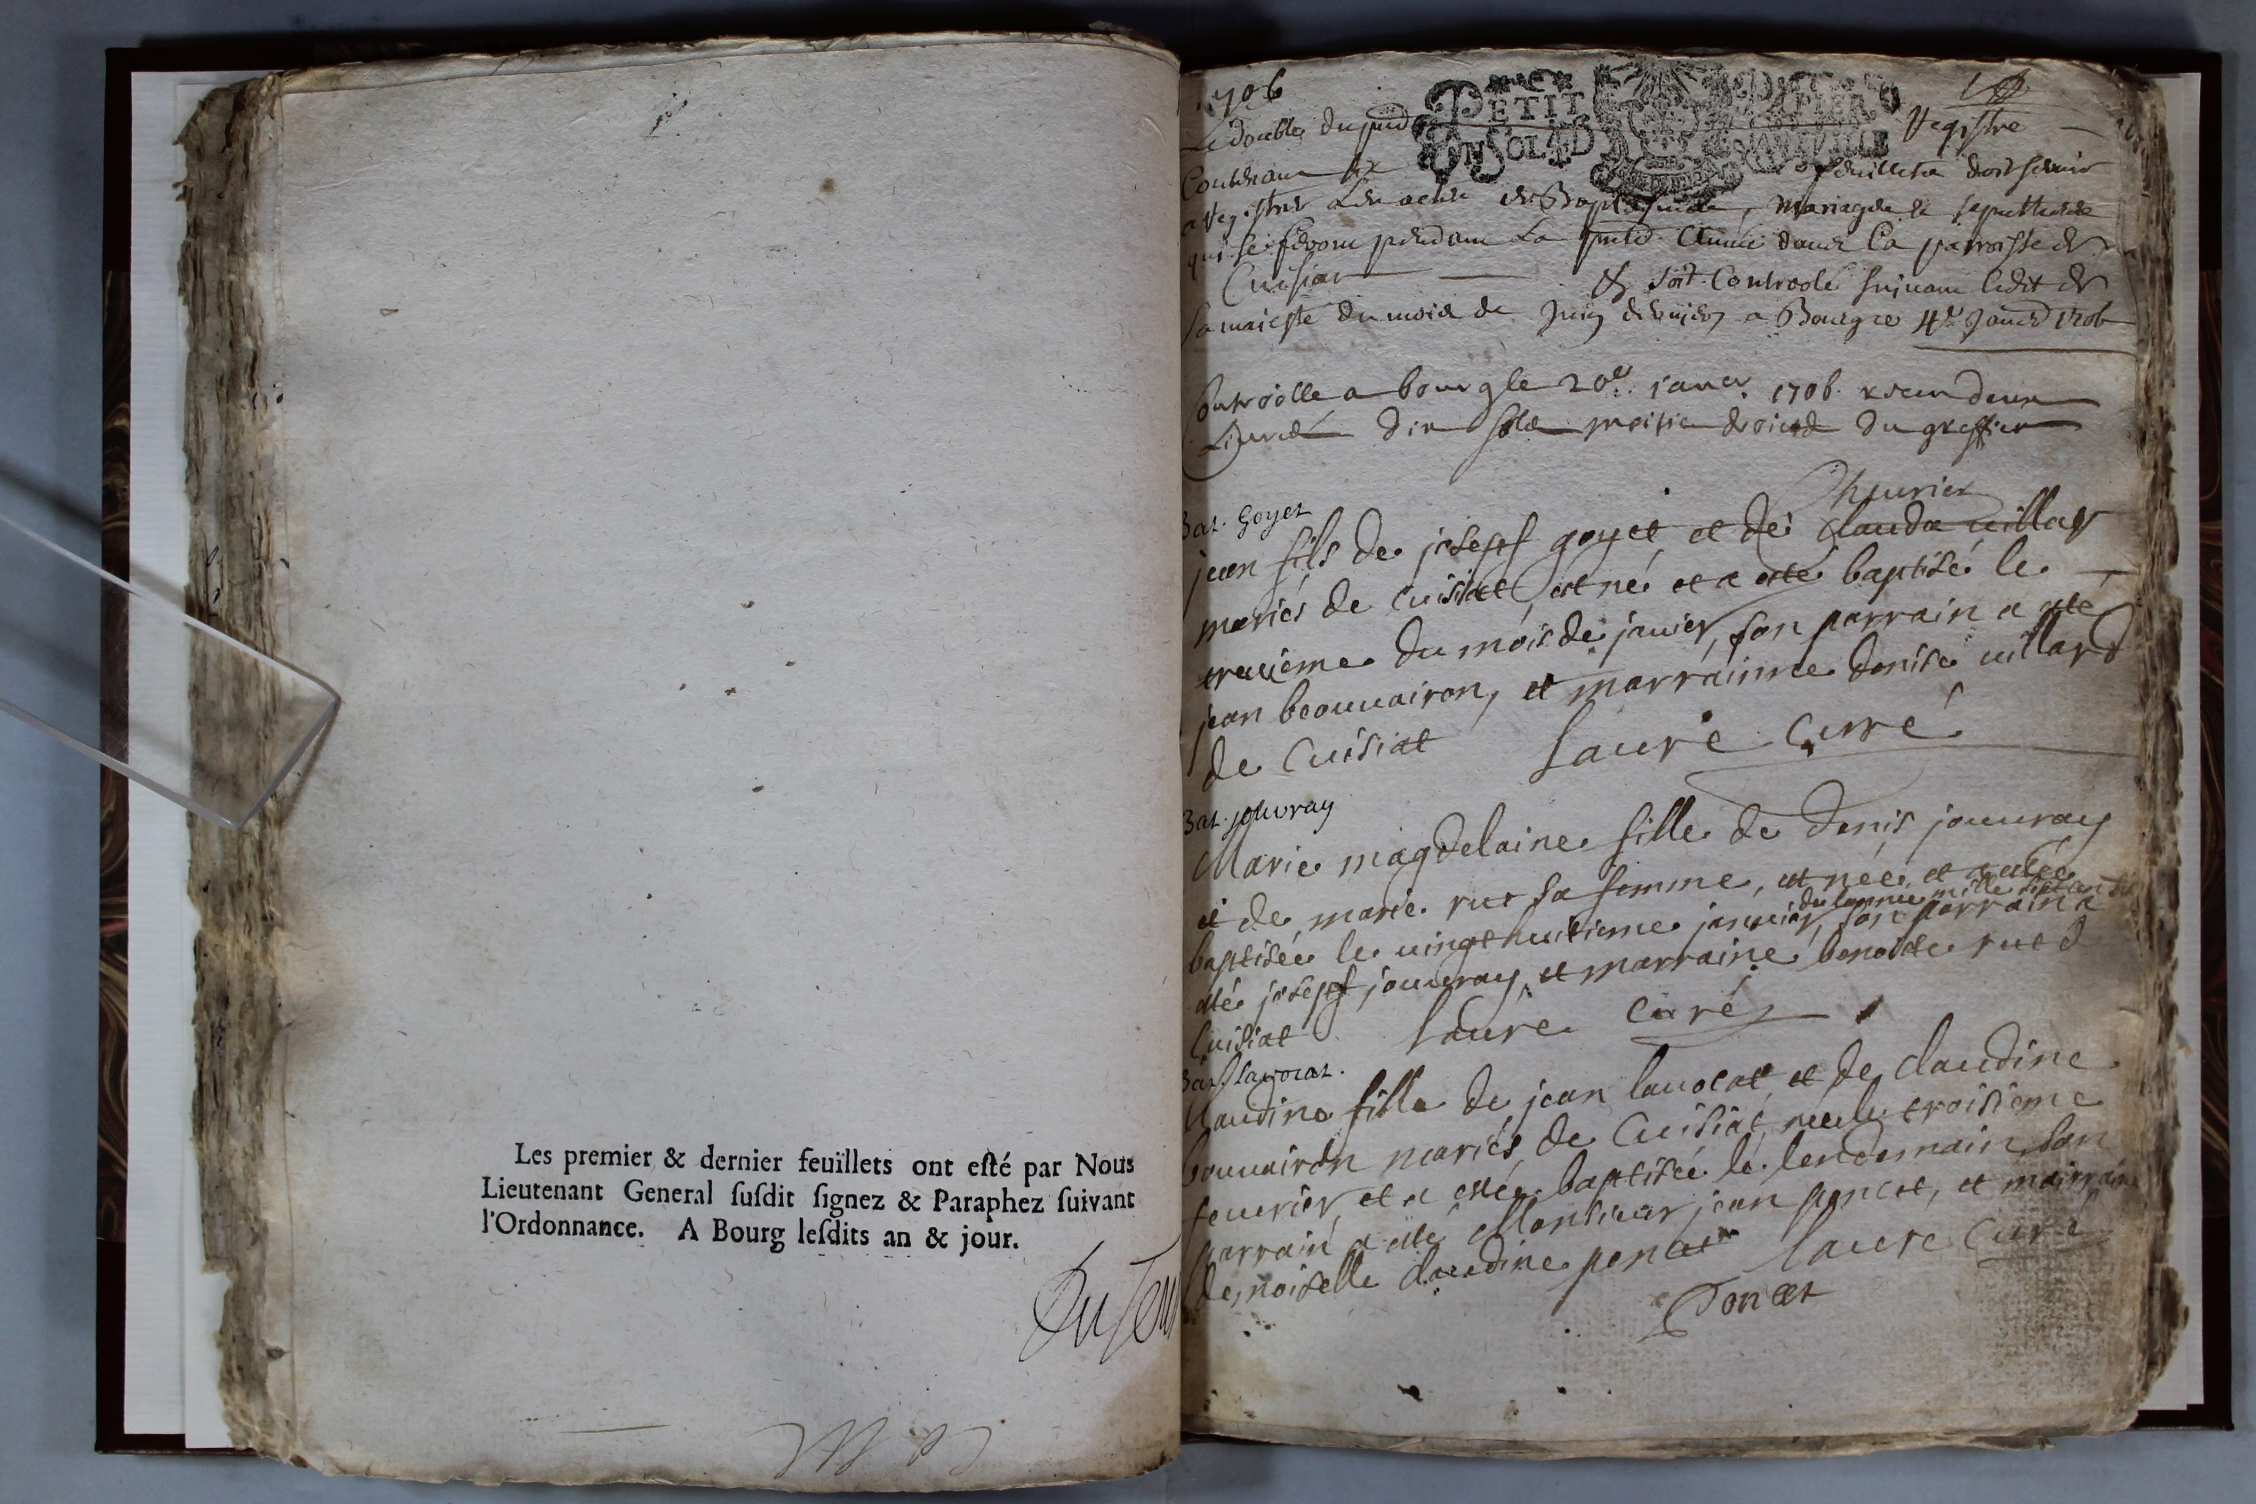 Les premier & dernier feuillets ont esté par Nous
Lieutenant General susdit signez & Paraphez suivant
l'Ordonnance. A Bourg lesdits an & jour.
1706
PETIT PAPIER
UN SOL
Le double du pnt Registre
Contenant feuillets doit servir
a registrer Les actes de Baptesmes, Mariages & sepultures
qui se feront pendant La pnte Année dans La parroisse de
Cuisiat & soit Controolé suivant Ledit de
sa majesté du mois de Juin dernier a Bourg ce 4e Janvr 1706
Controlle a bourg le 20e janer 1706. receu deux
Livres dix sols moitie droicts du greffier
Bat. Goyet
jean fils de josepf goyet et de clauda uillars
mariés de Cuisiat, est né et a esté baptisé le
du mois de janier, son parrain a été
jean beouuairon, et marrainne denise uillard
de Cuisiat Laure curé
Bat. jouvray
Marie magdelaine fille de denis jouuray
et de marie rut sa femme, est née et a été
de lannée mille sept cent six
baptisée le uingt huitieme januier, son parrain a
été josepf jouuray, et marraine benoite rut d
Cuisiat Laure curé
Bat. Lavocat.
Claudine fille de jean lauocat et de claudine
bouuairon mariés de Cuisiat, née le troisieme
feurier, et a etée baptisée le lendemain, son
parrain a eté Monsieur jean poncet, et marraine
demoiselle claudine poncet Laure Curé
Poncet